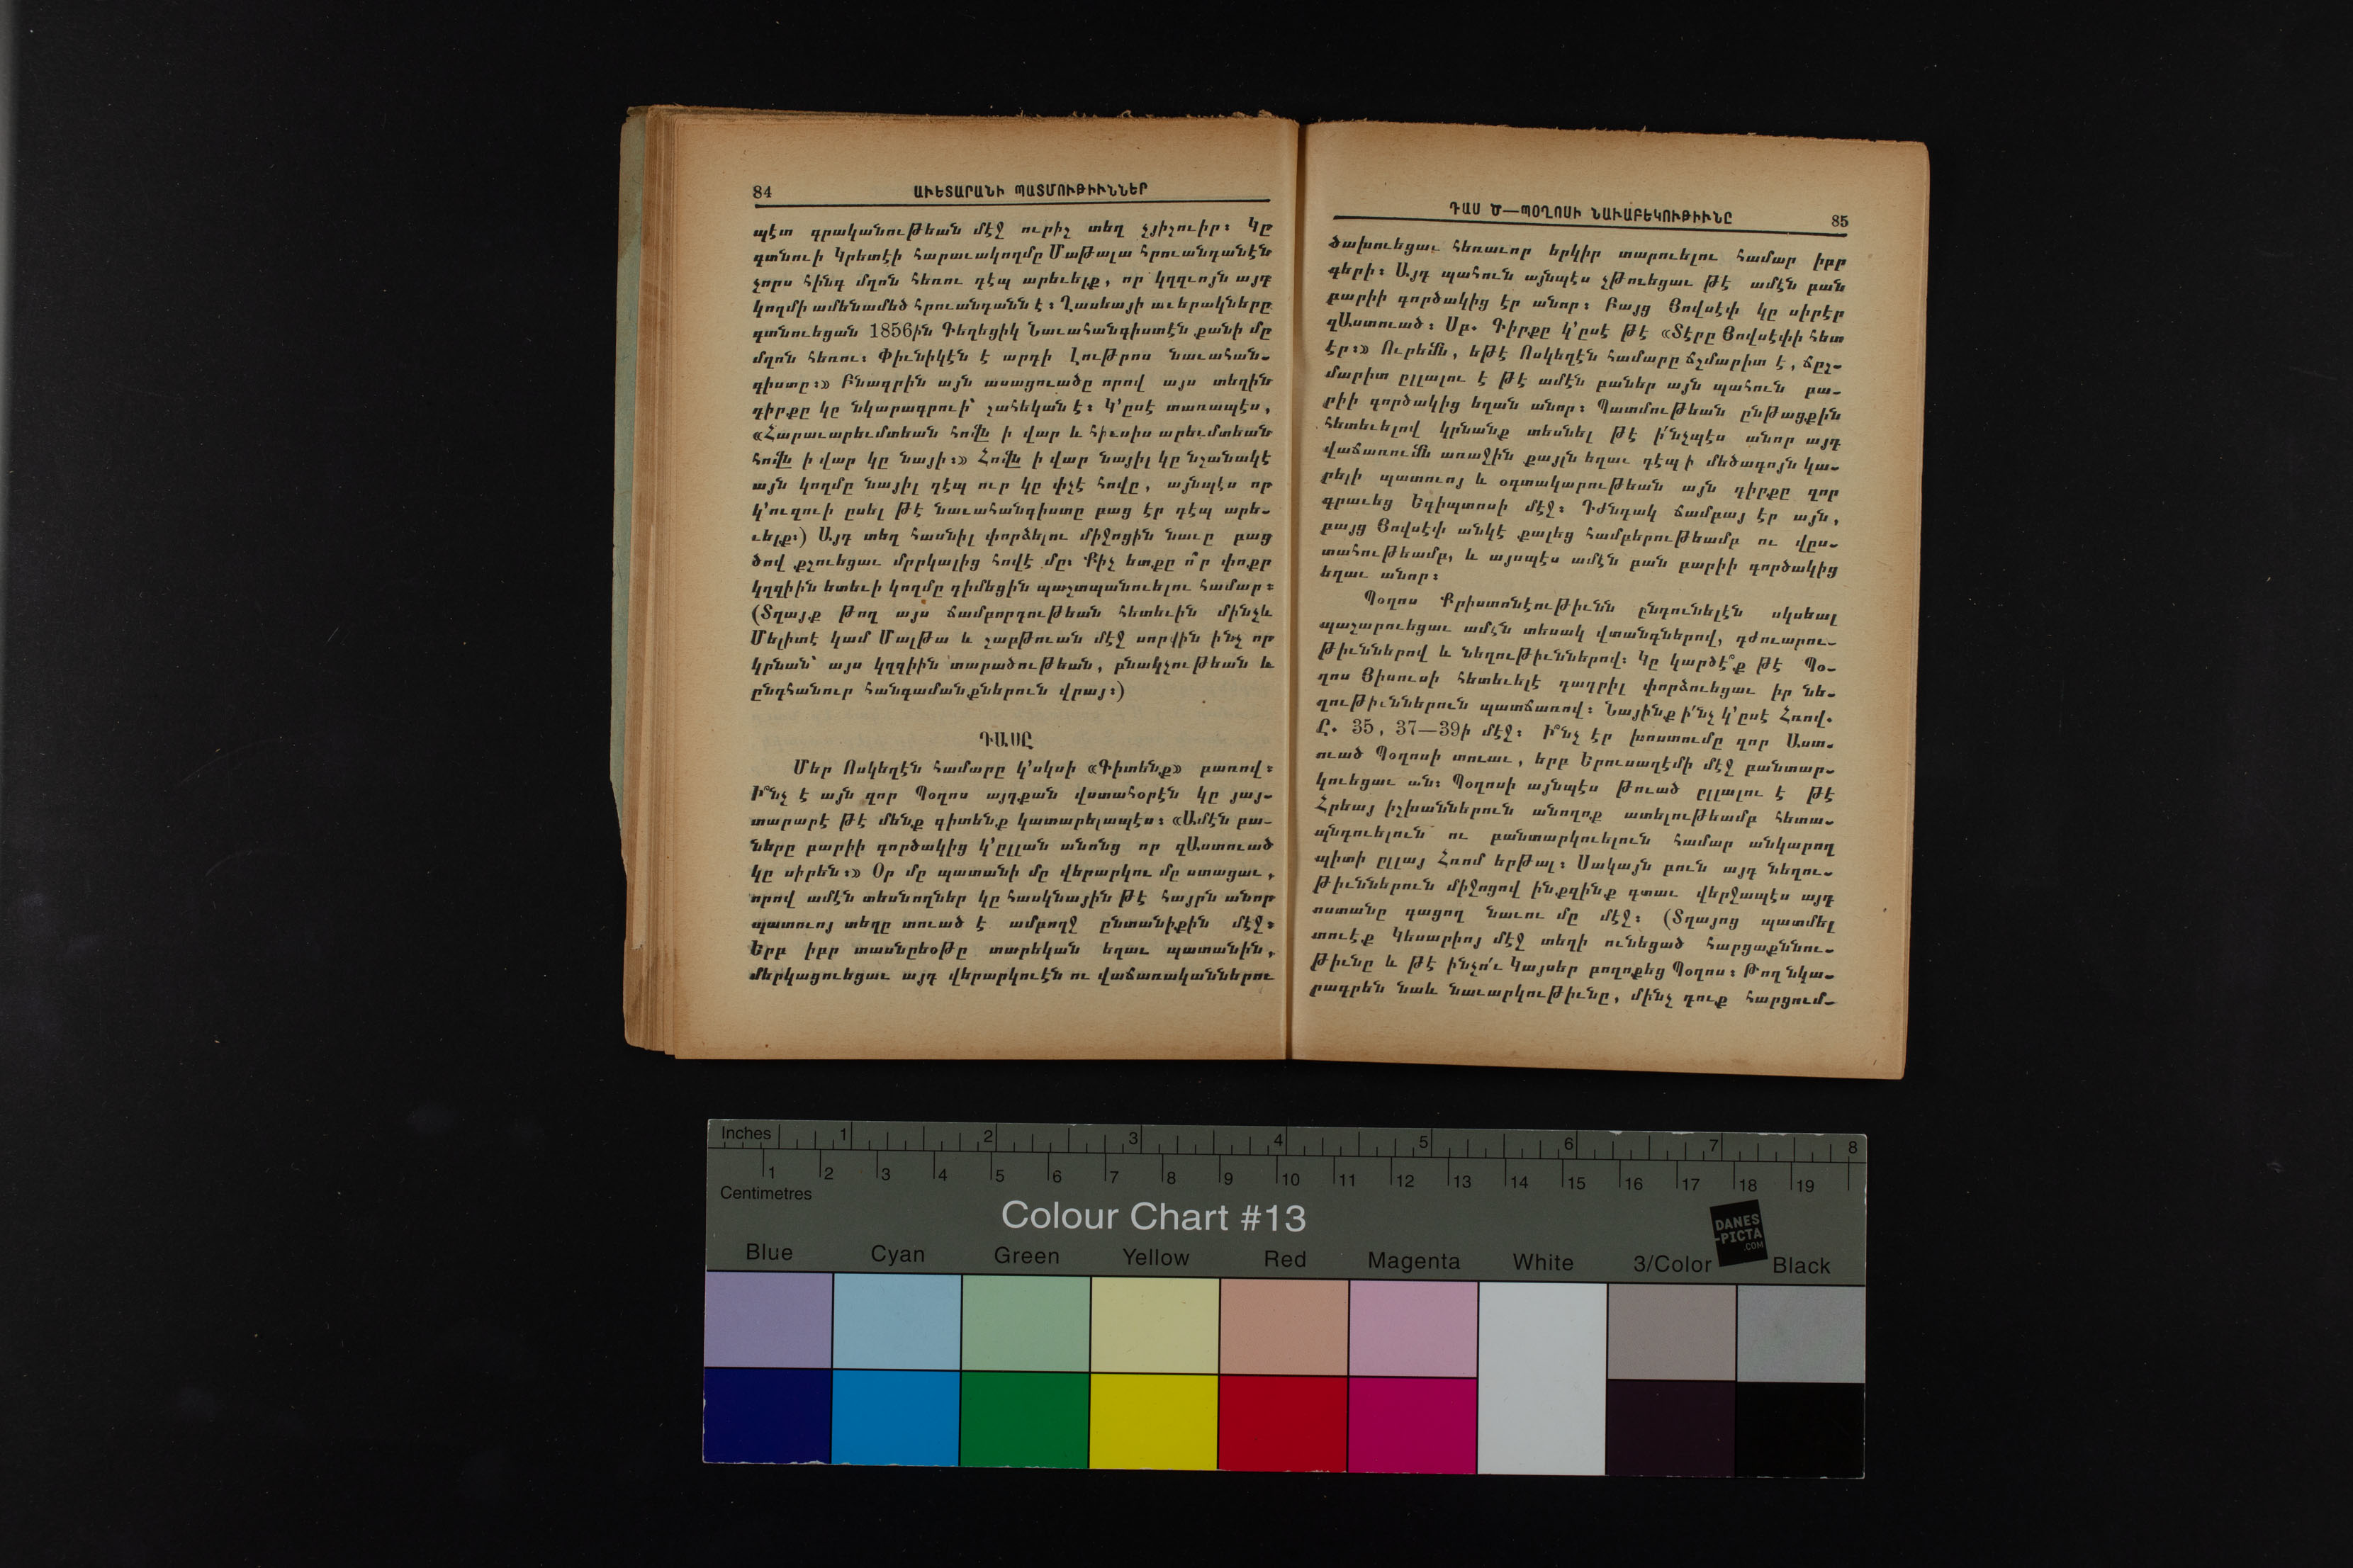 84 ԱՒԵՏԱՐԱՆԻ ՊԱՏՄՈՒԹԻՒՆՆԵՐ
պէտ գրականութեան մէջ ուրիշ տեղ չյիշուիր։ Կը
գտնուի Կրետէի հարաւակողմը Մաթալա հրուանդանէն
չորս հինգ մղոն հեռու դէպ արեւելք, որ կղզւոյն այդ
կողմի ամենամեծ հրուանդանն է։ Ղասեայի աւերակները
գտնուեցան 1856ին Գեղեցիկ Նաւահանգիստէն քանի մը
մղոն հեռու։ Փիւնիկէն է արդի Լութրոս նաւահան-
գիստը։» Բնագրին այն ասացուածը որով այս տեղին
դիրքը կը նկարագրուի՝ շահեկան է։ Կ՚ըսէ տառապէս,
«Հարաւարեւմտեան հովն ի վար և հիւսիս արեւմտեան
հովն ի վար կը նայի։» Հովն ի վար նայիլ կը նշանակէ
այն կողմը նայիլ դէպ ուր կը փչէ հովը, այնպէս որ
կ՚ուզուի ըսել թէ նաւահանգիստը բաց էր դէպ արե-
ւելք։) Այդ տեղ հասնիլ փորձելու միջոցին նաւը բաց
ծով քշուեցաւ մրրկալից հովէ մը։ Քիչ ետքը ո՞ր փոքր
կղզիին ետեւի կողմը դիմեցին պաշտպանուելու համար։
(Տղայք թող այս ճամբորդութեան հետեւին մինչև
Մելիտէ կամ Մալթա և շաբթուան մէջ սորվին ինչ որ
կրնան՝ այս կղզիին տարածութեան, բնակչութեան և
ընդհանուր հանգամանքներուն վրայ։)
ԴԱՍԸ
Մեր Ոսկեղէն համարը կ՚սկսի «Գիտենք» բառով։
Ի՞նչ է այն զոր Պօղոս այդքան վստահօրէն կը յայ-
տարարէ թէ մենք գիտենք կատարելապէս։ «Ամէն բա-
ները բարիի գործակից կ՚ըլլան անոնց որ զԱստուած
կը սիրեն։» Օր մը պատանի մը վերարկու մը ստացաւ,
որով ամէն տեսնողներ կը հասկնային թէ հայրն անոր
պատուոյ տեղը տուած է ամբողջ ընտանիքին մէջ։
Երբ իբր տասնըեօթը տարեկան եղաւ պատանին,
մերկացուեցաւ այդ վերարկուէն ու վաճառականներու
ԴԱՍ Ծ—ՊՕՂՈՍԻ ՆԱՒԱԲԵԿՈՒԹԻՒՆԸ 85
ծախուեցաւ հեռաւոր երկիր տարուելու համար իբր
գերի։ Այդ պահուն այնպէս չթուեցաւ թէ ամէն բան
բարիի գործակից էր անոր։ Բայց Յովսէփ կը սիրէր
զԱստուած։ Սբ. Գիրքը կ՚ըսէ թէ «Տէրը Յովսէփի հետ
էր։» Ուրեմն, եթէ Ոսկեղէն համարը ճշմարիտ է, ճըշ-
մարիտ ըլլալու է թէ ամէն բաներ այն պահուն բա-
րիի գործակից եղան անոր։ Պատմութեան ընթացքին
հետեւելով կրնանք տեսնել թէ ի՛նչպէս անոր այդ
վաճառումն առաջին քայլն եղաւ դէպ ի մեծագոյն կա-
րելի պատուոյ և օգտակարութեան այն դիրքը զոր
գրաւեց Եգիպտոսի մէջ։ Դժնդակ ճամբայ էր այն,
բայց Յովսէփ անկէ քալեց համբերութեամբ ու վըս-
տահութեամբ, և այսպէս ամէն բան բարիի գործակից
եղաւ անոր։
Պօղոս Քրիստոնէութիւնն ընդունելէն սկսեալ
պաշարուեցաւ ամէն տեսակ վտանգներով, դժուարու-
թիւններով և նեղութիւններով։ Կը կարծէ՞ք թէ Պօ-
ղոս Յիսուսի հետեւելէ դադրիլ փորձուեցաւ իր նե-
ղութիւններուն պատճառով։ Նայինք ի՛նչ կ՚ըսէ Հռով.
Ը. 35, 37—39ի մէջ։ Ի՞նչ էր խոստումը զոր Աստ-
ուած Պօղոսի տուաւ, երբ Երուսաղէմի մէջ բանտար-
կուեցաւ ան։ Պօղոսի այնպէս թուած ըլլալու է թէ
Հրեայ իշխաններուն անողոք ատելութեամբ հետա-
պնդուելուն ու բանտարկուելուն համար անկարող
պիտի ըլլայ Հռոմ երթալ։ Սակայն բուն այդ նեղու-
թիւններուն միջոցով ինքզինք գտաւ վերջապէս այդ
ոստանը գացող նաւու մը մէջ։ (Տղայոց պատմել
տուէք Կեսարիոյ մէջ տեղի ունեցած հարցաքննու-
թիւնը և թէ ինչո՛ւ Կայսեր բողոքեց Պօղոս։ Թող նկա-
րագրեն նաև նաւարկութիւնը, մինչ դուք հարցում-
Inches 1 2 3 4 5 6 7 8
1 2 3 4 5 6 7 8 9 10 11 12 13 14 15 16 17 18 19
Centimetres
Colour Chart #13
DANES
-PICTA
.COM
Blue Cyan Green Yellow Red Magenta White 3/Color Black